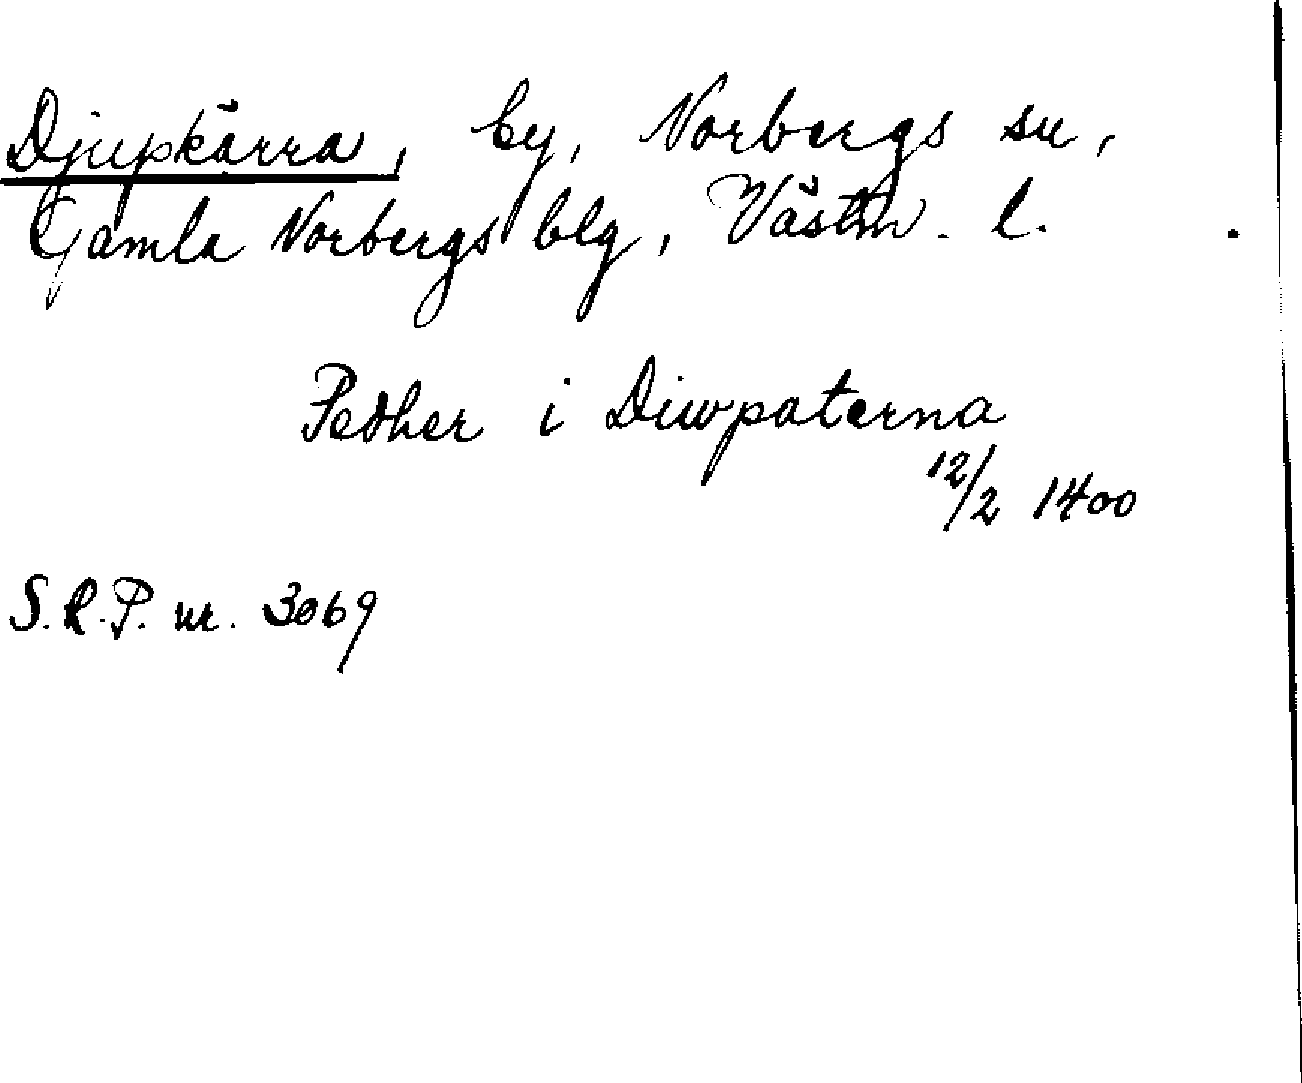 Djupkärra, by, Norbergs sn,
Gamla Norbergs blg, Västm. l.
Pedher i Diwpaterna
12/2 1400
S.R.P. nr. 3069